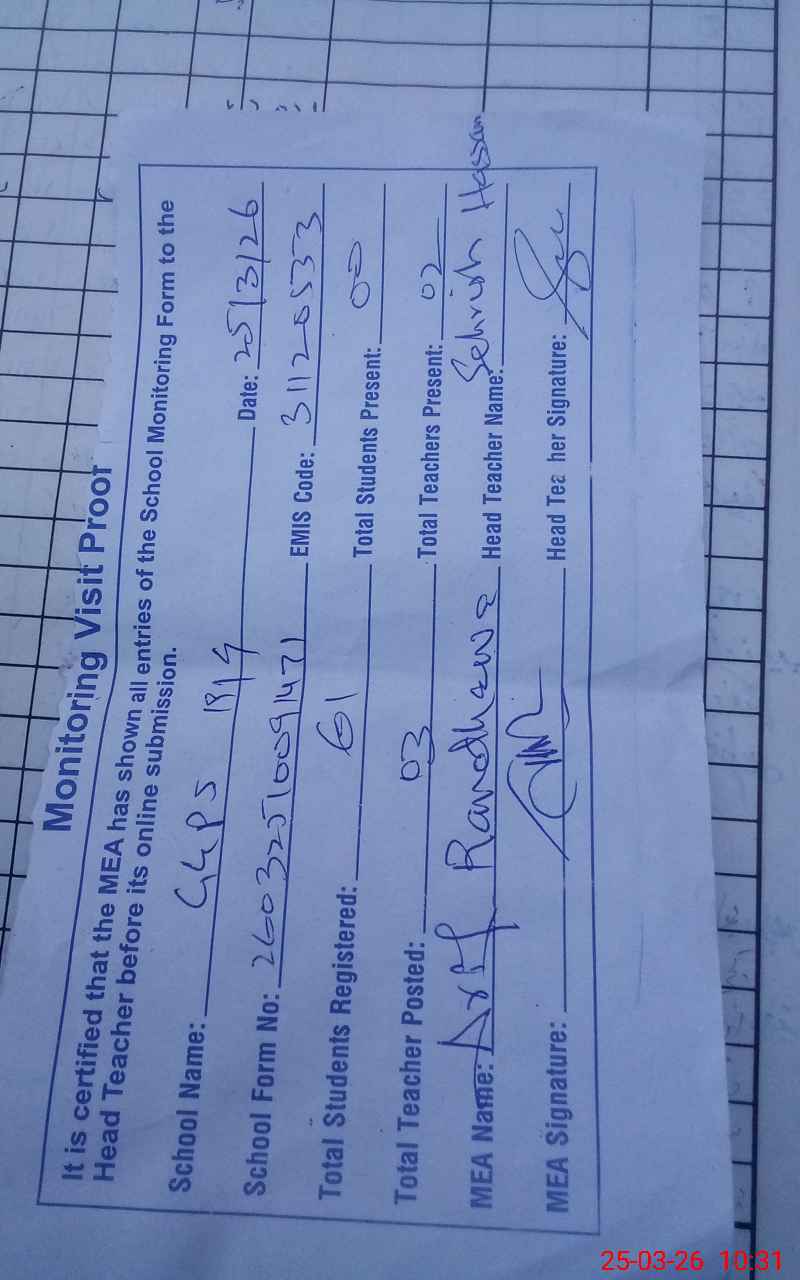 Monitoring Visit Proof
It is certified that the MEA has shown all entries of the School Monitoring Form to the
Head Teacher before its online submission.
School Name: GGPS 19/G Date: 25/3/26
School Form No: 26032510091471 EMIS Code: 31120533
Total Students Registered: 61 Total Students Present: 00
Total Teacher Posted: 03 Total Teachers Present: 02
MEA Name: Arif Randhawa Head Teacher Name: Sehrish Hassan
MEA Signature: Head Tea her Signature:
25-03-26 10:31